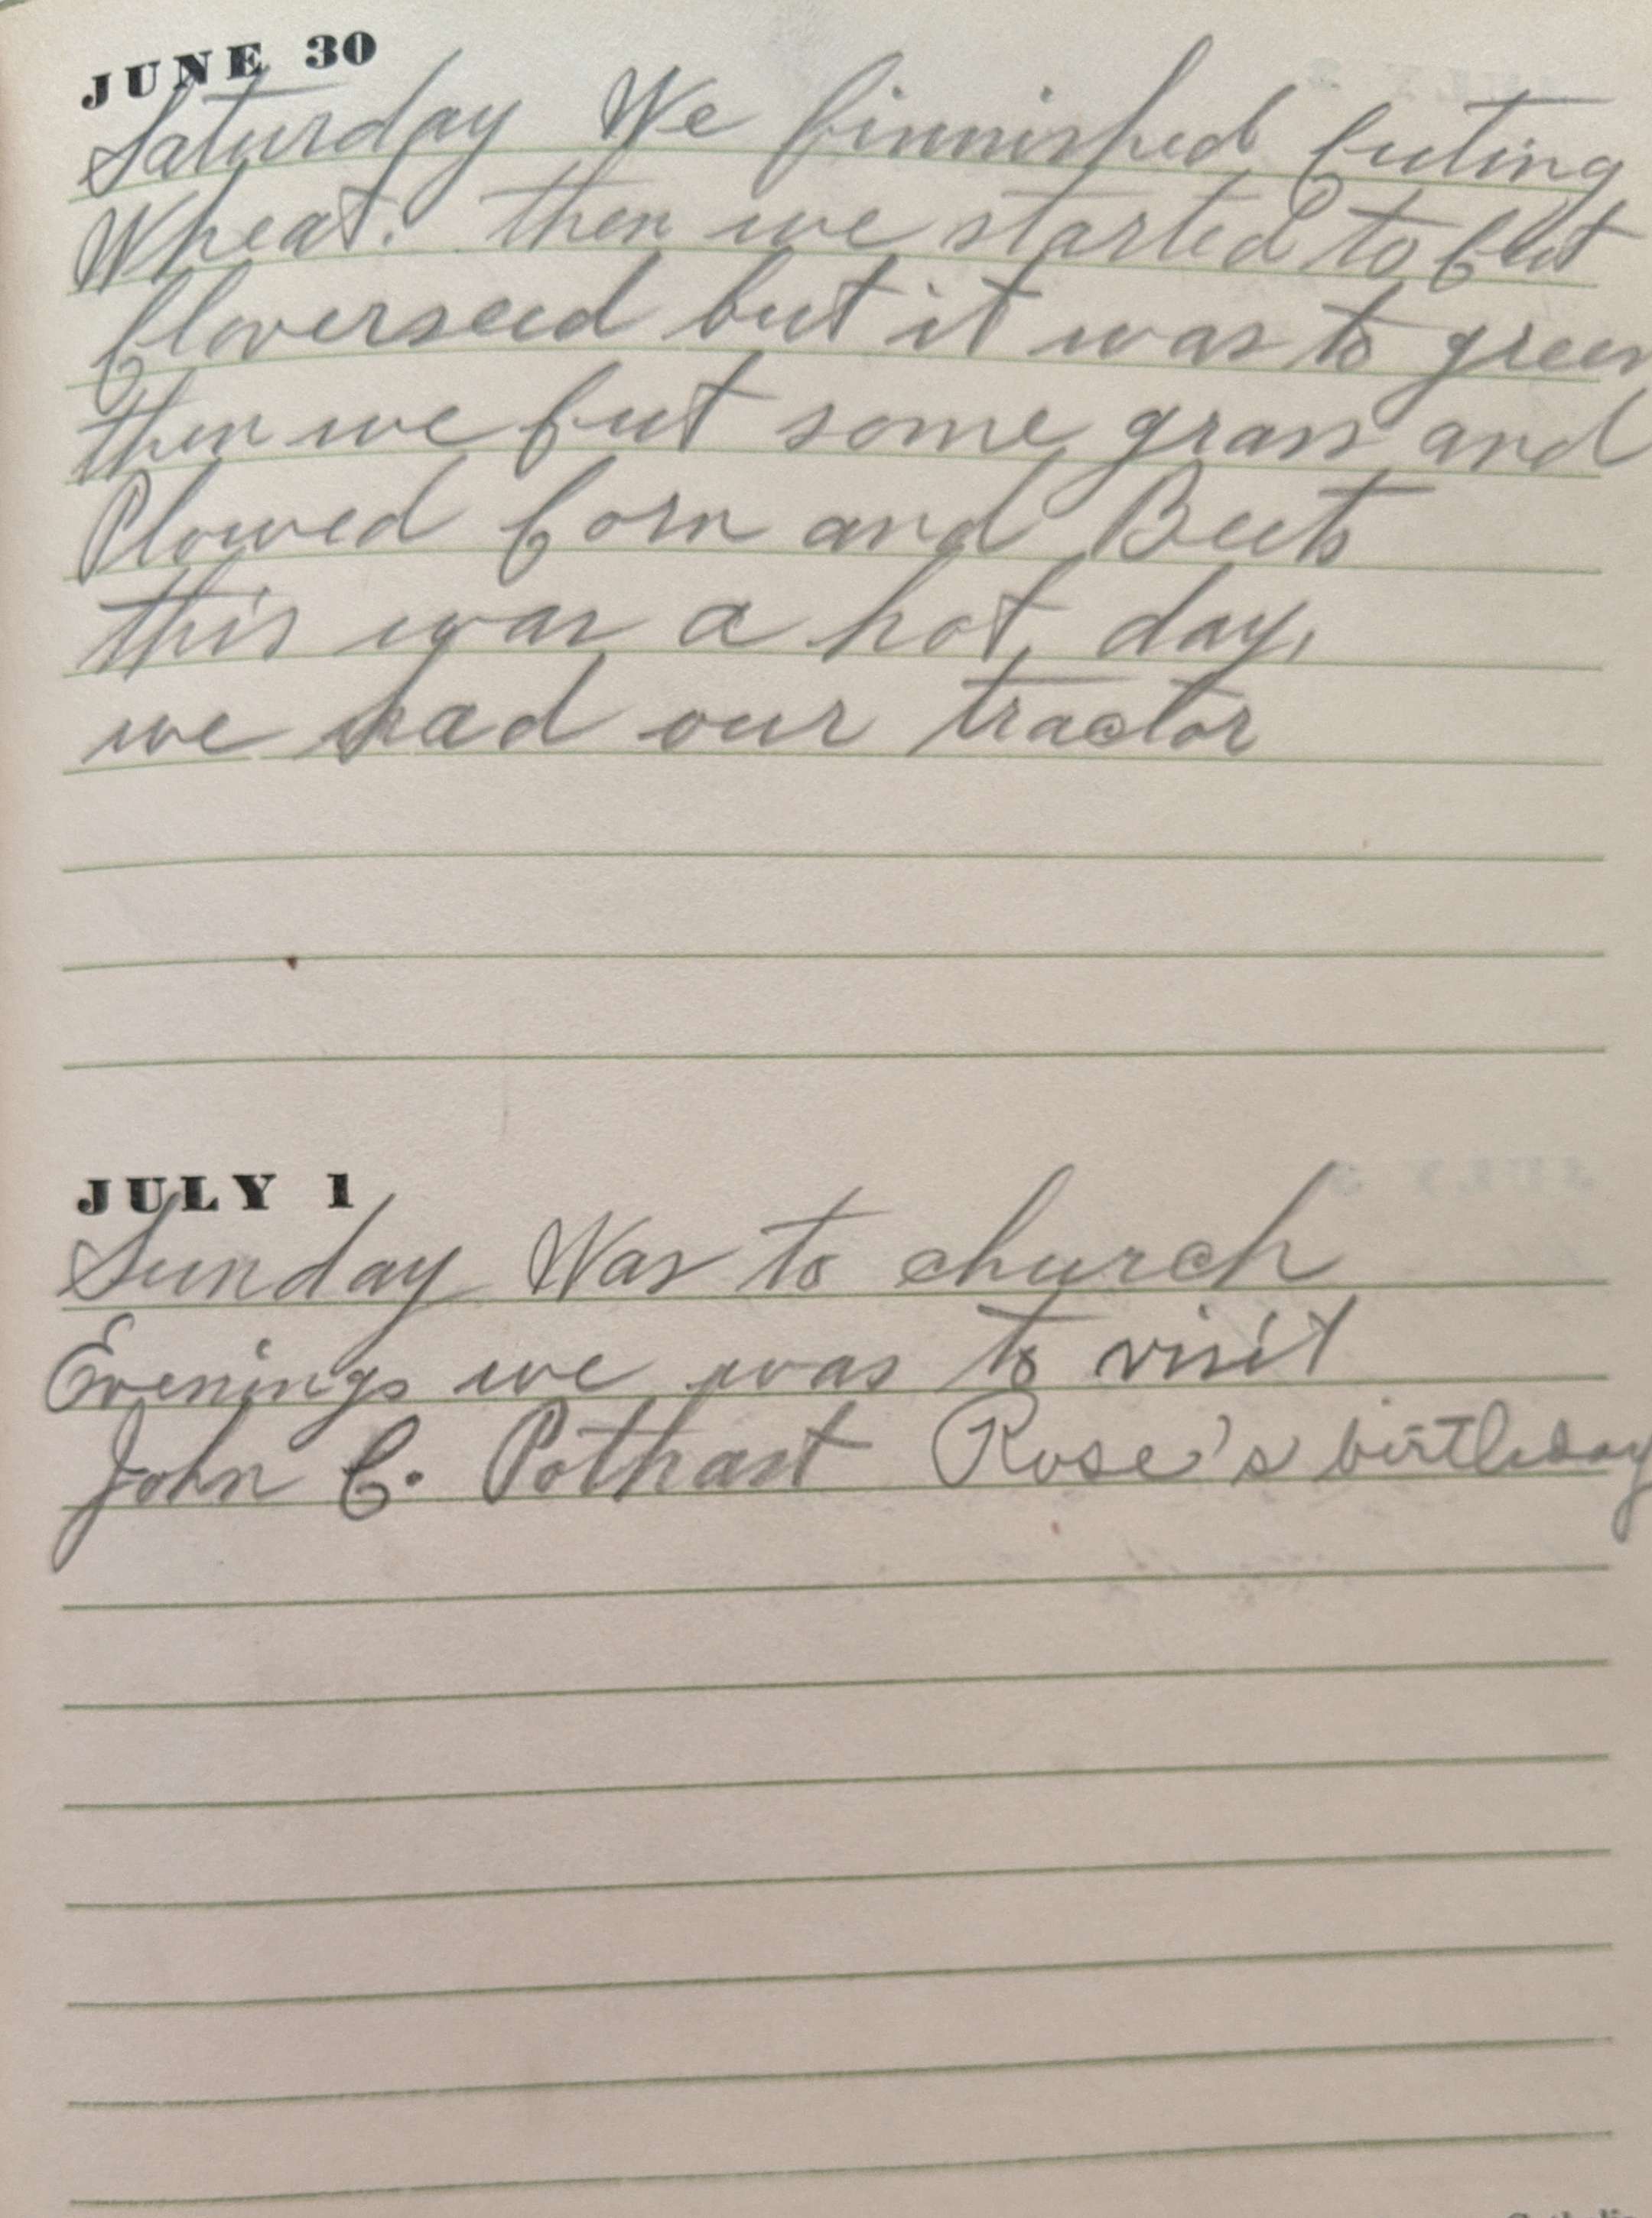 JUNE 30
Saturday We finnished Cuting
Wheat. then we started to Cut
Cloverseed but it was to green
then we Cut some grass and
Plowed Corn and Beets
this was a hot day,
we had our tractor
JULY 1
Sunday Was to church
Evenings we was to visit
John C. Pothast Rose's birthday